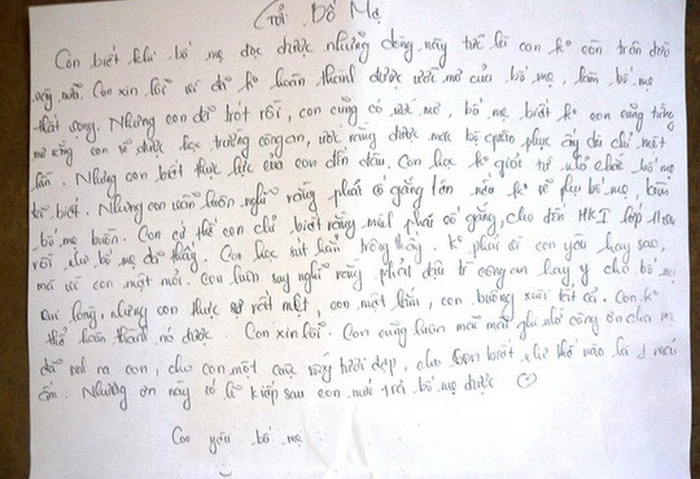 Gửi Bố Mẹ
Con biết khi bố mẹ đọc được những dòng này tức là con ko còn trên đời
này nữa. Con xin lỗi vì đã ko hoàn thành được ước mơ của bố mẹ, làm bố mẹ
thất vọng. Nhưng con đã trót rồi, con cũng có ước mơ, bố mẹ biết ko con cũng từng
mơ rằng con sẽ được học trường công an, ước rằng được mặc bộ quân phục ấy dù chỉ một
lần. Nhưng con biết thực lực của con đến đâu. Con học ko giỏi từ nhỏ chắc bố mẹ
cũng biết. Nhưng con vẫn luôn nghĩ rằng phải cố gắng lên nếu ko sẽ phụ bố mẹ, làm
bố mẹ buồn. Con cứ thế con chỉ biết rằng mình phải cố gắng, cho đến HKI lớp 11
rồi như bố mẹ đã thấy. Con học sút hẳn trông thấy. Ko phải vì con yêu hay sao,
mà vì con mệt mỏi. Con luôn suy nghĩ rằng phải đậu trường công an hay y cho bố mẹ
vui lòng, nhưng con thực sự rất mệt, con mệt lắm, con buông xuôi tất cả. Con ko
thể hoàn thành nó được. Con xin lỗi. Con cũng luôn mãi mãi ghi nhớ công ơn cha mẹ
đã sinh ra con, cho con một cuộc sống tươi đẹp, cho con biết như thế nào là 1 mái
ấm. Nhưng ơn này có lẽ kiếp sau con mới trả bố mẹ được.
Con yêu bố mẹ